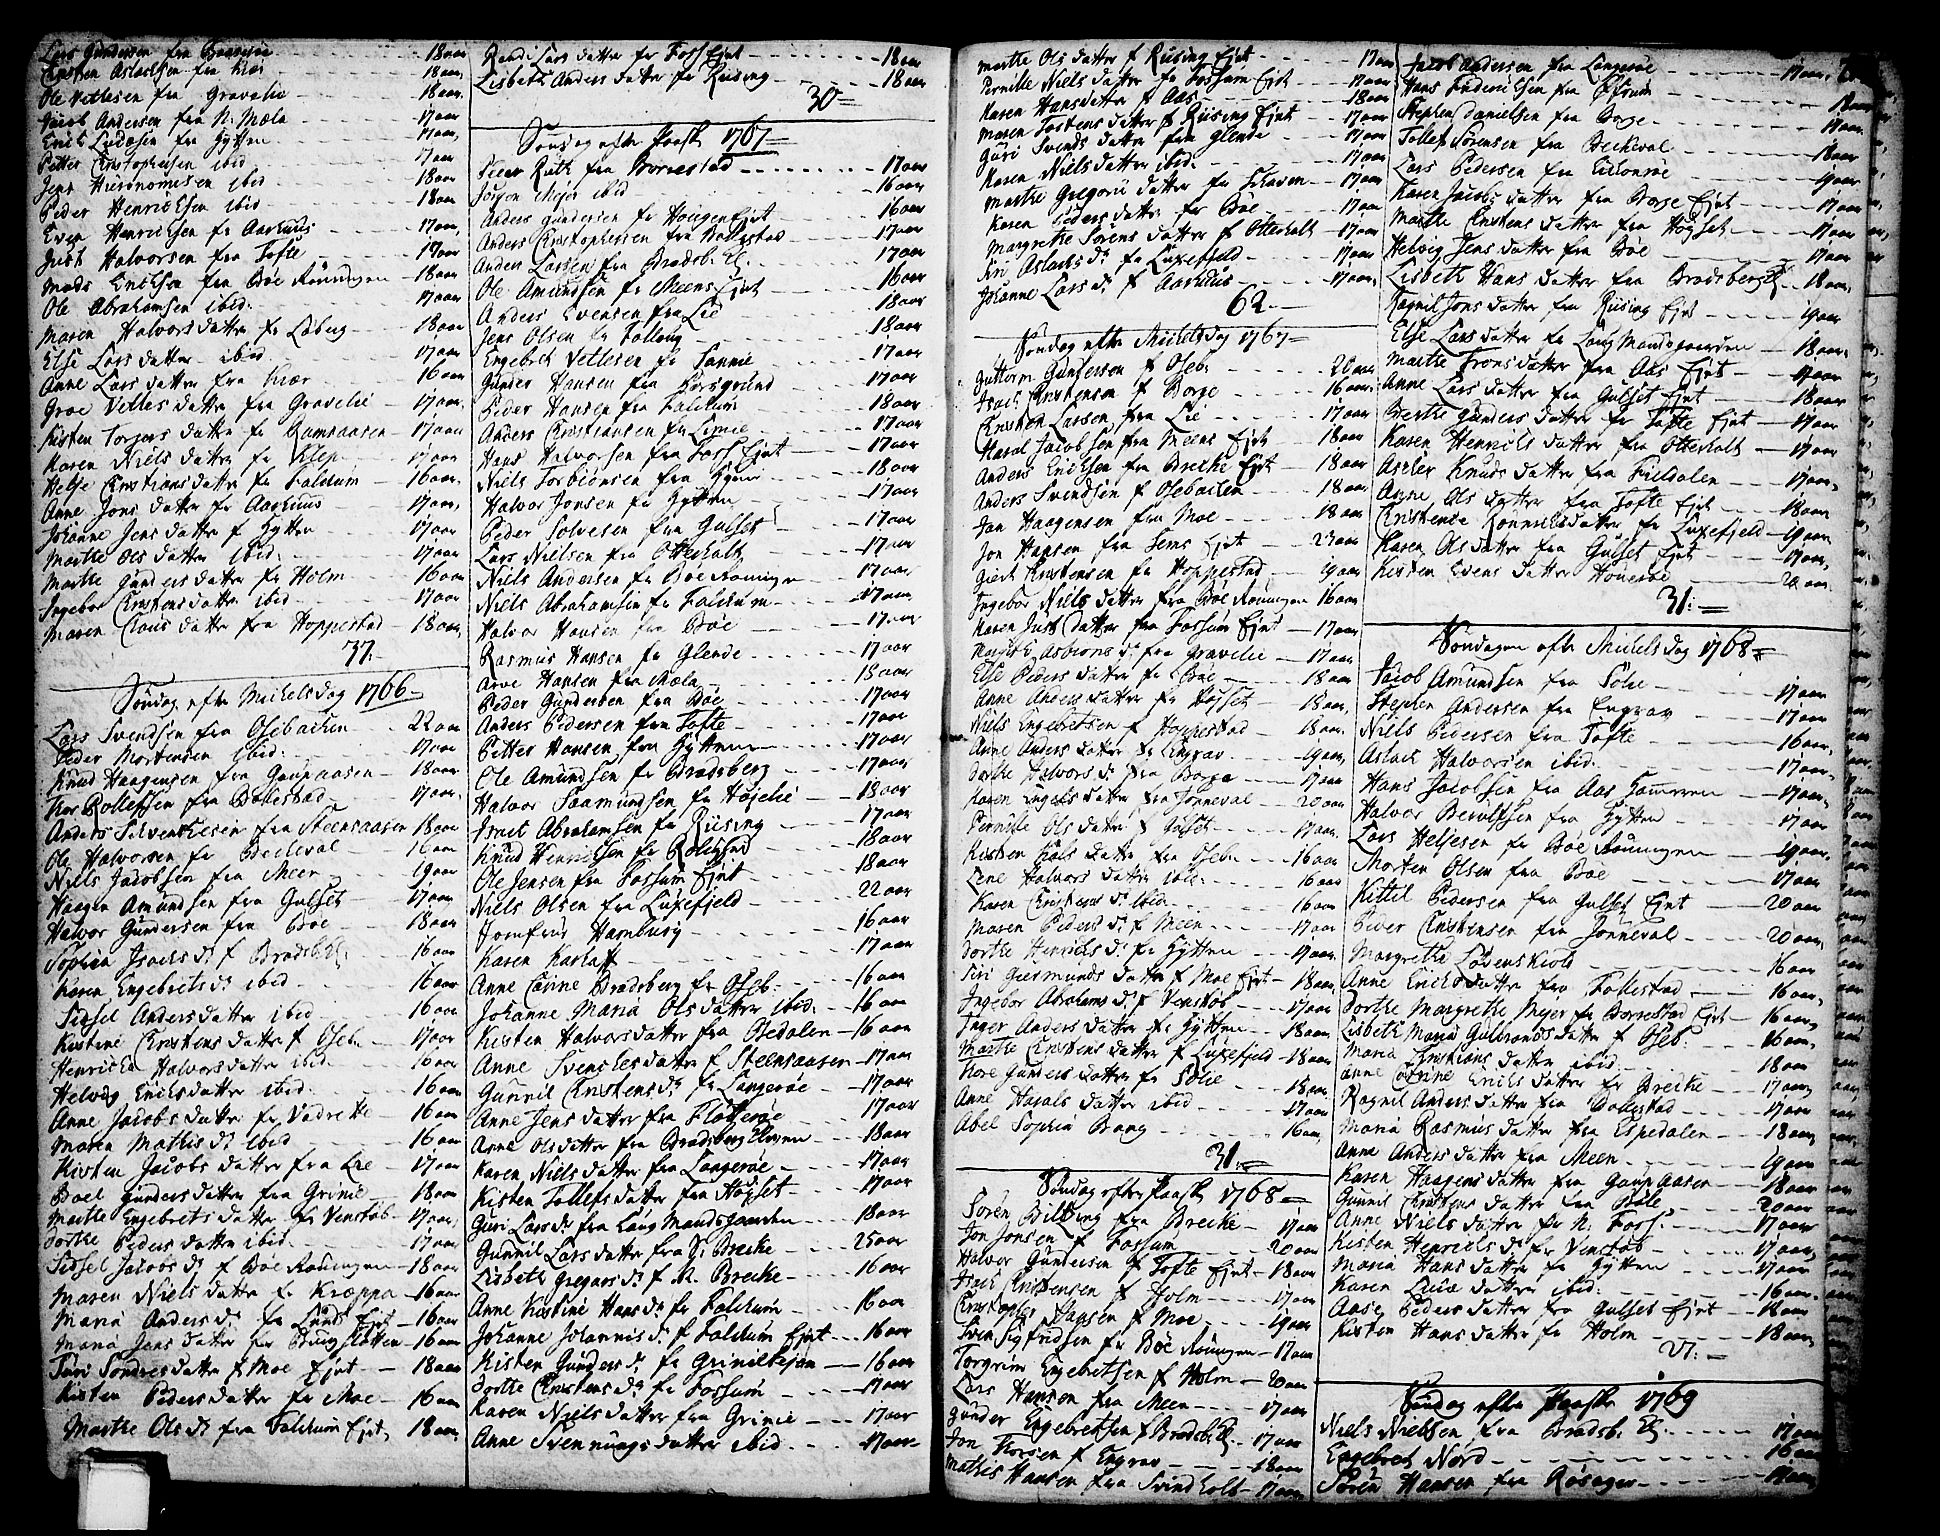 Lars Gundersen fra Baaserøe 18 aar
Christen Aslachsen fra Kiær 18 aar
Ole Vetlesen fra Gravelie 18 aar
Jacob Andersen fra N. Mæla 17 aar
Erich Ludvigsen fra Hytten 17 aar
Petter Christophersen ibid 17 aar
Jens Hieronomisen ibid 18 aar
Peder Henrichsen ibid 18 aar
Even Henrichsen fr Aarhuus 17 aar
Just Halvorsen fra Tofte 17 aar
Mads Erichsen fra Bøe Rønningen 18 aar
Ole Abrahamsen ibid. 17 aar
Maren Halvors datter fr Liberg 18 aar
Else Lars datter ibid 17 aar
Anne Lars datter fra Kiær 16 aar
Groe Vetles datter fra Gravelie 17 aar
Kisten Torgers datter fr Ramsaasen 17 aar
Karen Niels datter fr Klep 17 aar
Helje Christians datter fr Falchum 16 aar
Anne Jons datter fr Aarhuus 17 aar
Johanne Jens datter f Hytten 17 aar
Marthe Ols datter ibid: 17 aar
Marthe Gunders datter fr Holm 16 aar
Ingebor Christens datter ibid 17 aar
Maren Claus datter fra Hoppestad 18 aar
37.
Søndag efter Michelsdag 1766
Lars Svendsen fra Osebachen 22 aar
Peder Mortensen ibid: 17 aar
Knud Haagensen fra Gaupaasen 18 aar
Thor Rollefsen fra Bollestad 17 aar
Anders Silvenchesen fra Steensaasen 18 aar
Ole Halvorsen fr Becheval 16 aar
Niels Jacobsen fra Meen 19 aar
Haagen Amundsen fra Gulset 17 aar
Halvor Gundersen fra Bøe 18 aar
Sophia Isachs dr f Bradsb. El. 16 aar
Karen Engebrets dr ibid 16 aar
Sidsel Anders datter ibid 16 aar
Kistene Christens datter f Oseb. 17 aar
Henricha Halvors datter ibid 16 aar
Helvig Erichs datter ibid: 16 aar
Anne Jacobs datter fr Vadrette 16 aar
Maren Mathis dr ibid 16 aar
Kisten Jacobs datter fra Lie 17 aar
Boel Gunders datter fra Grinie 18 aar
Marthe Engebrets datter fr Venstøb 17 aar
Dorthe Peders datter ibid. 17 aar
Sidsel Jacobs dr f Bøe Rønningen 18 aar
Maren Niels datter fr Kræppa 16 aar
Maria Anders dr fr Lund Ejet 16 aar
Maria Jens datter fra Brugsløtten 16 aar
Turi Sondres datter f Moe Ejet 18 aar
Kisten Peders datter fr Moe 16 aar
Marthe Ols dr fra Falchum Ejet 18 aar
Randi Lars datter fr Foss Ejet 18 aar
Lisbeth Anders datter fr Riising 18 aar
30
Søndag efter Paaske 1767
Peder Ruth fra Borrestad 17 aar
Jørgen Mejer ibid 16 aar
Anders Gundersen fr Haugen Ejet 16 aar
Anders Christophersen fra Bollestad 17 aar
Anders Larsen fra Bradsb. El. 17 aar
Ole Amundsen fr Meens Ejet 16 aar
Anders Evensen fra Lie 18 aar
Jens Olsen fr Follaug 18 aar
Engebreth Vetlesen fr Sannie 17 aar
Gunder Hansen fra Porsgrund 17 aar
Peder Hansen fra Falchum 18 aar
Anders Christiansen fr Lynie 17 aar
Hans Halvorsen fra Foss Ejet 17 aar
Niels Torbiønsen fra Hynie 18 aar
Halvor Jonsen fr Hytten 17 aar
Peder Solvesen fra Gulset 17 aar
Lars Nielsen fra Otterholt 17 aar
Niels Andersen fr Bøe Rønningen 17 aar
Niels Abrahamsen fr Falchum 17 aar
Halvor Hansen fra Bøe 17 aar
Rasmus Hansen fr Glende 17 aar
Arve Hansen fra Mæla 18 aar
Peder Gundersen fra Bøe 17 aar
Anders Pedersen fra Tofte 17 aar
Petter Hansen fra Hytten 17 aar
Ole Amundsen fr Bradsberg 17 aar
Halvor Saamundsen fr Højelie 18 aar
Israel Abrahamsen fr Riising 17 aar
Knud Henrichsen fr Rolighed 18 aar
Ole Jensen fra Fossum Ejet 18 aar
Niels Olsen fra Luxefjeld 22 aar
Jomfrue Hamburg 16 aar
Karen Karhaff 17 aar
Anne Carine Bradsberg fr Oseb: 16 aar
Johanne Maria Ols datter ibid: 16 aar
Kisten Halvors datter fra Osedalen 16 aar
Anne Svenches datter f Steensaasen 17 aar
Gunnil Christens dr fr Langerøe 17 aar
Anne Jens datter fra Fløtterøe 17 aar
Anne Ols datter fra Bradsberg Elven 18 aar
Karen Niels datter fra Langerøe 17 aar
Kisten Tollefs datter fra Højset 17 aar
Guri Lars dr fra Laug Mandsgaarden 18 aar
Gunnil Lars datter fra N: Brecke 25 aar
Lisbeth Gregars dr f N. Brecke 16 aar
Anne Kistine Hans dr fr Falchum 16 aar
Johanne Johannis dr f Falchum Ejet 16 aar
Kisten Gunders dr fr Grinitbejen 16 aar
Dorthe Christens dr fr Fossum 17 aar
Karen Niels datter fra Grinie 17 aar
Anne Svennungs datter ibid 17 aar
Marthe Ols datter f Riising Ejet 17 aar
Pernille Niels datter fr Fossum Ejet 17 aar
Karen Hans datter f Aas 18 aar
Maren Tostens datter f Riising Ejet 17 aar
Guri Svends datter fra Glende 17 aar
Karen Niels datter ibid: 17 aar
Marthe Gregorii datter fra Skaven 17 aar
Karen Peders datter fra Bøe 17 aar
Margrethe Sørens datter f Otterholt 17 aar
Siri Aslachs dr fr Luxefjeld 17 aar
Johanne Lars dr f Aarhuus 17 aar
62.
Søndag efter Michelsdag 1767
Guttorm Gundersen f Oseb. 20 aar
Isach Christensen f Borge 16 aar
Christen Larsen fra Lie 17 aar
Harol Jacobsen fra Meens Ejet 18 aar
Anders Erichsen fra Brecke Ejet 18 aar
Anders Svendsen f Osebachen 18 aar
Jan Haagensen fra Moe 18 aar
Jon Hansen fra Lems Ejet 23 aar
Giert Christensen fr Hoppestad 19 aar
Ingebor Niels datter fra Bøe Rønningen 16 aar
Karen Just datter fra Fossum Ejet 17 aar
Margrethe Asbiøns dr fra Gravelie 17 aar
Else Peders datter fr Bøe 18 aar
Anne Anders datter fr Højset 18 aar
Niels Engebretsen f Hoppestad 18 aar
Anne Anders datter fr Engrav 19 aar
Dorthe Halvors dr fra Borge 17 aar
Karen Engels datter fra Jønneval 20 aar
Pernille Ols datter f Gulset 17 aar
Kisten Hols datter fra Oseb. 16 aar
Lene Halvors datter ibid: 16 aar
Karen Christens dr ibid 16 aar
Maren Peders dr f Meen 17 aar
Dorthe Henrichs dr fr Hytten 19 aar
Siri Giermunds datter f Moe Ejet 18 aar
Ingebor Abrahams dr f Venstøb 17 aar
Inger Anders datter fr Hytten 18 aar
Marthe Christens datter f Luxefjeld 18 aar
Thore Gunders datter fr Solie 18 aar
Anne Harals datter ibid 17 aar
Abel Sophia Bang 16 aar
31.
Søndag efter Paaske 1768
Søren Billing fra Brecke 17 aar
Jon Jonsen f Fossum 20 aar
Halvor Gundersen f Tofte Ejet 18 aar
Isach Christensen f Holm 17 aar
Christopher Hansen f Moe 19 aar
Sven Sigfridsen fr Bøe Rønningen 17 aar
Torgrim Engebretsen f Holm 20 aar
Lars Hansen fra Meen 17 aar
Gunder Engebretsen f Bradsb. El. 17 aar
Jon Thorsen f Engrav 18 aar
Mathis Hansen fra Svindholt 17 aar
Jacob Andersen fra Langerøe 17 aar
Hans Friderichsen fra Østrum 18 aar
Stephen Danielsen fra Borge 17 aar
Tollef Sørensen fra Becheval 18 aar
Lars Pedersen fra Eichonrøe 19 aar
Karen Jacobs datter fra Borge Ejet 17 aar
Marthe Christens datter fra Højset 17 aar
Helvig Jens datter fra Bøe 17 aar
Lisbeth Hans datter fra Bradsberg El. 18 aar
Ragnil Jons datter fra Riising Ejet 19 aar
Else Lars datter fr Laug Mandsgaarden 18 aar
Marthe Trons datter fra Aas Ejet 17 aar
Anne Lars datter fra Gulset Ejet 18 aar
Berthe Gunders datter fr Tofte Ejet 17 aar
Karen Henrichs datter fra Otterholt 17 aar
Aseler Knuds datter fra Fieldalen 17 aar
Anne Ols datter fra Tofte Ejet 18 aar
Christence Rønnichs datter fr Luxefjeld 19 aar
Karen Ols datter fra Gulset Ejet 17 aar
Kisten Evens datter Houerøe 20 aar
31.
Søndagen efter Michelsdag 1768
Jacob Amundsen fra Solie 17 aar
Stephen Andersen fra Engrav 17 aar
Niels Pedersen fra Tofte 16 aar
Aslach Halvorsen ibid. 17 aar
Hans Jacobsen fra Aas Tømmeren 17 aar
Halvor Berulfsen fra Hytten 17 aar
Lars Heljesen fr Bøe Rønningen 19 aar
Morten Olsen fra Bøe 17 aar
Kittil Pedersen fra Gulset Ejet 20 aar
Peder Christensen fra Jønneval 20 aar
Margrethe Løvenskiold 16 aar
Anne Erichs datter fra Follestad 16 aar
Dorthe Margrethe Mejer fr Borrestad Ejet 16 aar
Lisbeth Maria Gulbrands datter f Oseb. 16 aar
Maria Christians datter ibid. 18 aar
Anne Cathrine Erichs datter fr Brecke 17 aar
Ragnil Anders datter fra Bollestad 17 aar
Maria Rasmus datter fra Espedalen 18 aar
Anne Anders datter fra Meen 19 aar
Karen Haagens datter fra Gaupaasen 18 aar
Gunnil Christens datter fra Bøle 20 aar
Anne Niels datter fr N. Foss. 17 aar
Kisten Henrichs dr fr Venstøb 17 aar
Maria Hans datter fr Hytten 17 aar
Karen Lucæ datter ibid: 16 aar
Aase Peders datter fra Gulset Ejet 18 aar
Kisten Hans datter fr Holm 18 aar
27.
Søndag efter Paaske 1769
Niels Nielsen fra Bradsb. El. 17 aar
Engebret Nord 16 aar
Søren Hansen fra Røsager 17 aar